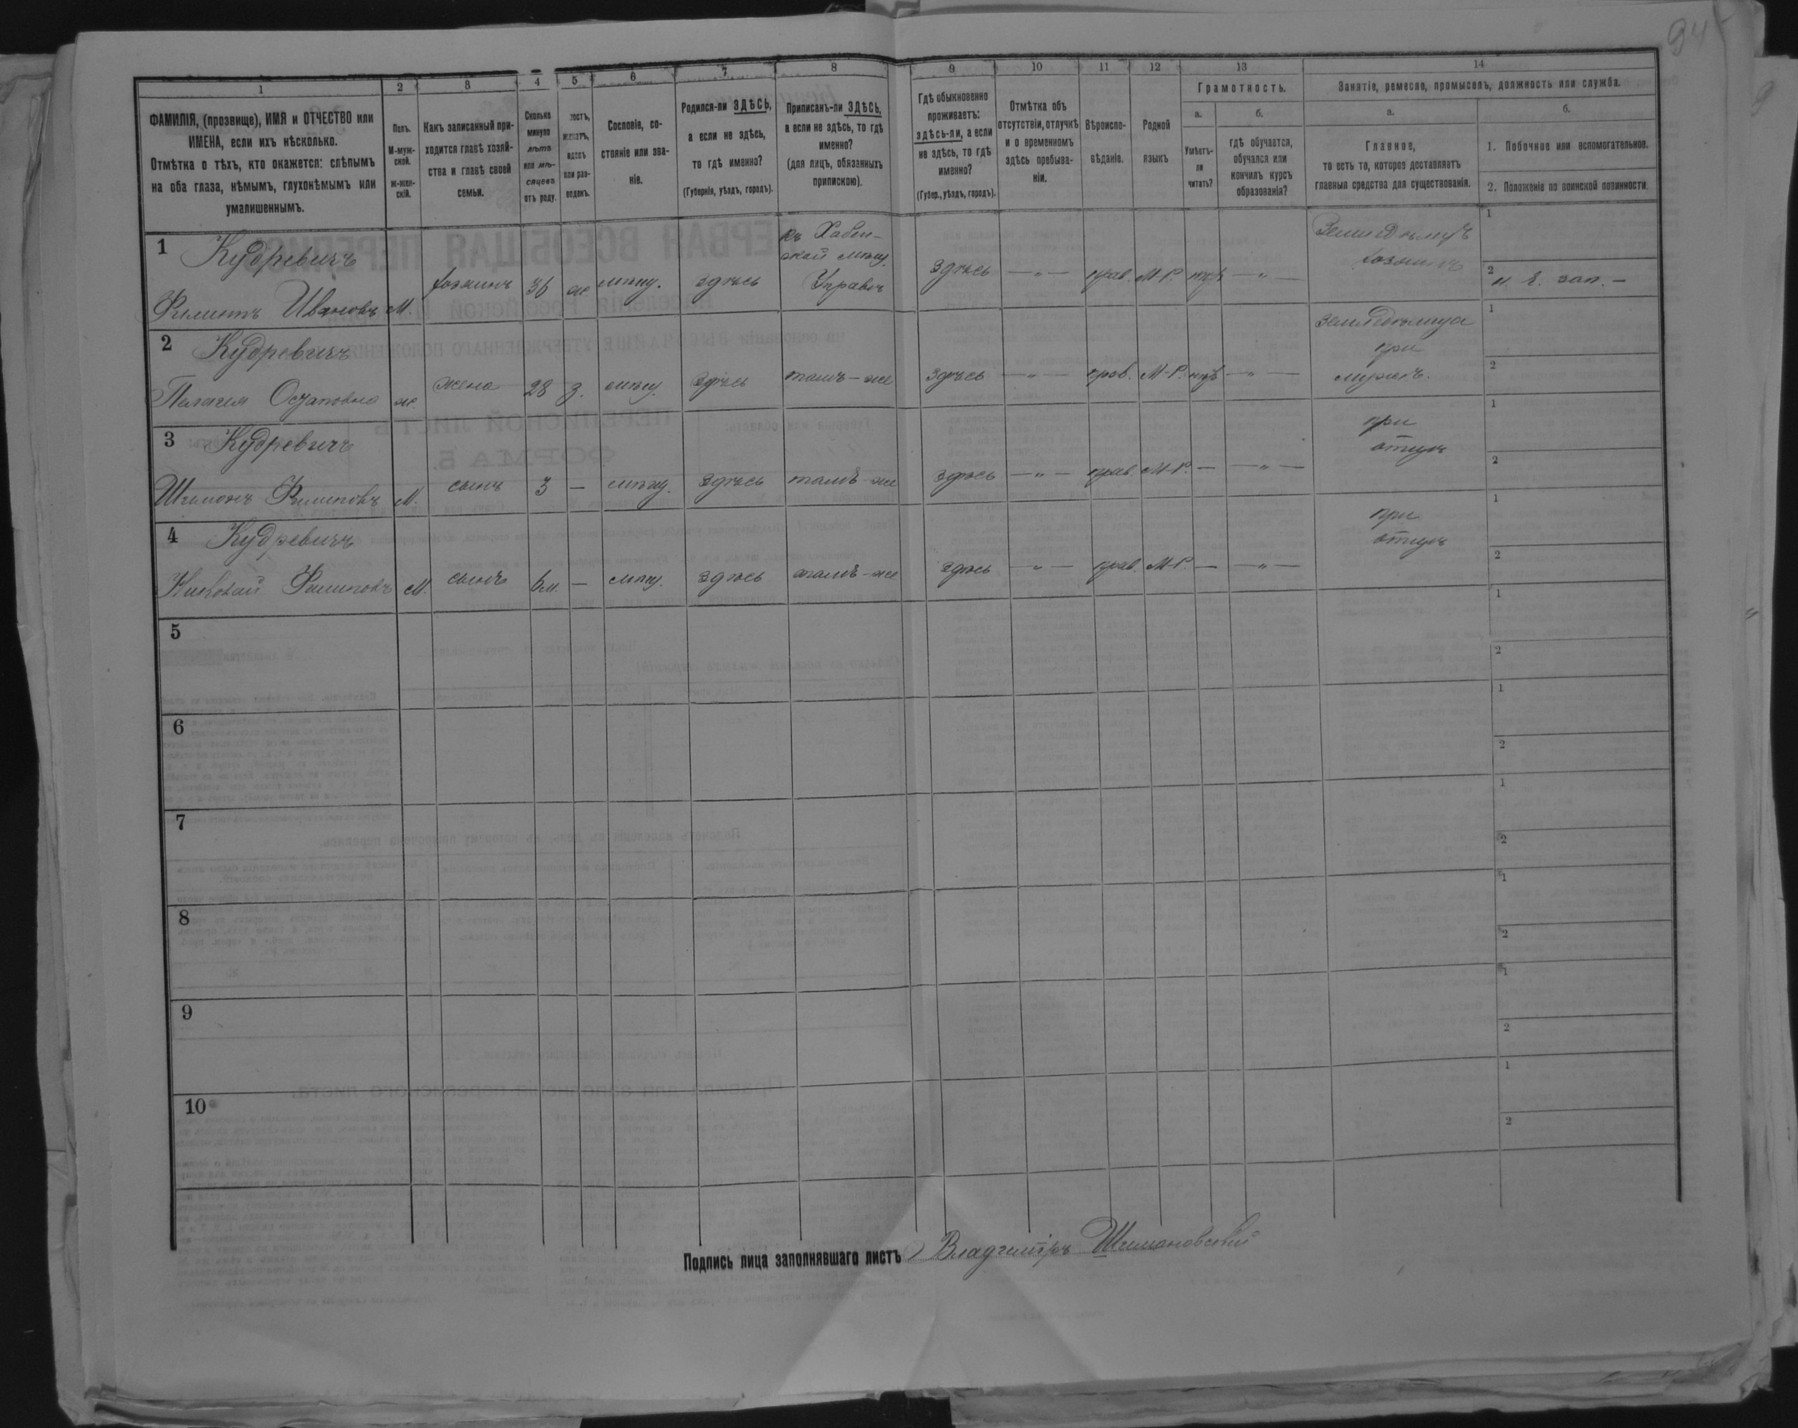 94
1 2 3 4 5 6 7 8 9 10 11 12 13 14
ФАМИЛІЯ, (прозвище), ИМЯ и ОТЧЕСТВО или
ИМЕНА, если ихъ нѣсколько.
Отмѣтка о тѣхъ, кто окажется: слѣпымъ
на оба глаза, нѣмымъ, глухонѣмымъ или
умалишеннымъ.
Полъ.
М-муж-
ской.
ж-жен-
скій.
Какъ записанный при-
ходится главѣ хозяй-
ства и главѣ своей
семьи.
Сколько
минуло
лѣтъ
или мѣ-
сяцевъ
отъ роду.
лостъ,
женатъ,
вдовъ
или раз-
веденъ.
Сословіе, со-
стояніе или зва-
ніе.
Родился-ли ЗДѢСЬ,
а если не здѣсь,
то гдѣ именно?
(Губернія, уѣздъ, городъ).
Приписанъ-ли ЗДѢСЬ,
а если не здѣсь, то гдѣ
именно?
(для лицъ, обязанныхъ
припискою).
Гдѣ обыкновенно
проживаетъ:
здѣсь-ли, а если
не здѣсь, то гдѣ
именно?
(Губер., уѣздъ, городъ).
Отмѣтка объ
отсутствіи, отлучкѣ
и о временномъ
здѣсь пребыва-
ніи.
Вѣроиспо-
вѣданіе.
Родной
языкъ
Грамотность.
а.
Умѣетъ-
ли
читать?
б.
гдѣ обучается,
обучался или
кончилъ курсъ
образованія?
Занятіе, ремесло, промыселъ, должность или служба.
а.
Главное,
то есть то, которое доставляетъ
главныя средства для существованія.
б.
1. Побочное или вспомогательное.
2. Положеніе по воинской повинности.
1 Кудревичъ
Филиппъ Ивановъ М. хозяинъ 36 ж мѣщ. здѣсь
къ Хабен-
ской мѣщ.
Управѣ
здѣсь — „ — прав. М-Р. нѣтъ — „ —
Земледѣлецъ
хозяинъ
1
2 н. в. зап. —
2 Кудревичъ
Пелагея Осиповна ж. жена 28 з. мѣщ. здѣсь тамъ-же здѣсь — „ — прав. М-Р. нѣтъ — „ —
при
мужѣ.
1
2
3 Кудревичъ
Филиповъ М. сынъ 3 — мѣщ. здѣсь тамъ-же здѣсь — „ — прав. М-Р. — — „ —
при
отцѣ
1
2
4 Кудревичъ
Николай Филиповъ М. сынъ 6м. — мѣщ. здѣсь тамъ-же здѣсь — „ — прав. М-Р — — „ —
при
отцѣ
1
2
5
1
2
6
1
2
7
1
2
8
1
2
9
1
2
10
1
2
Подпись лица заполнявшаго листъ Владиміръ Шимановскій